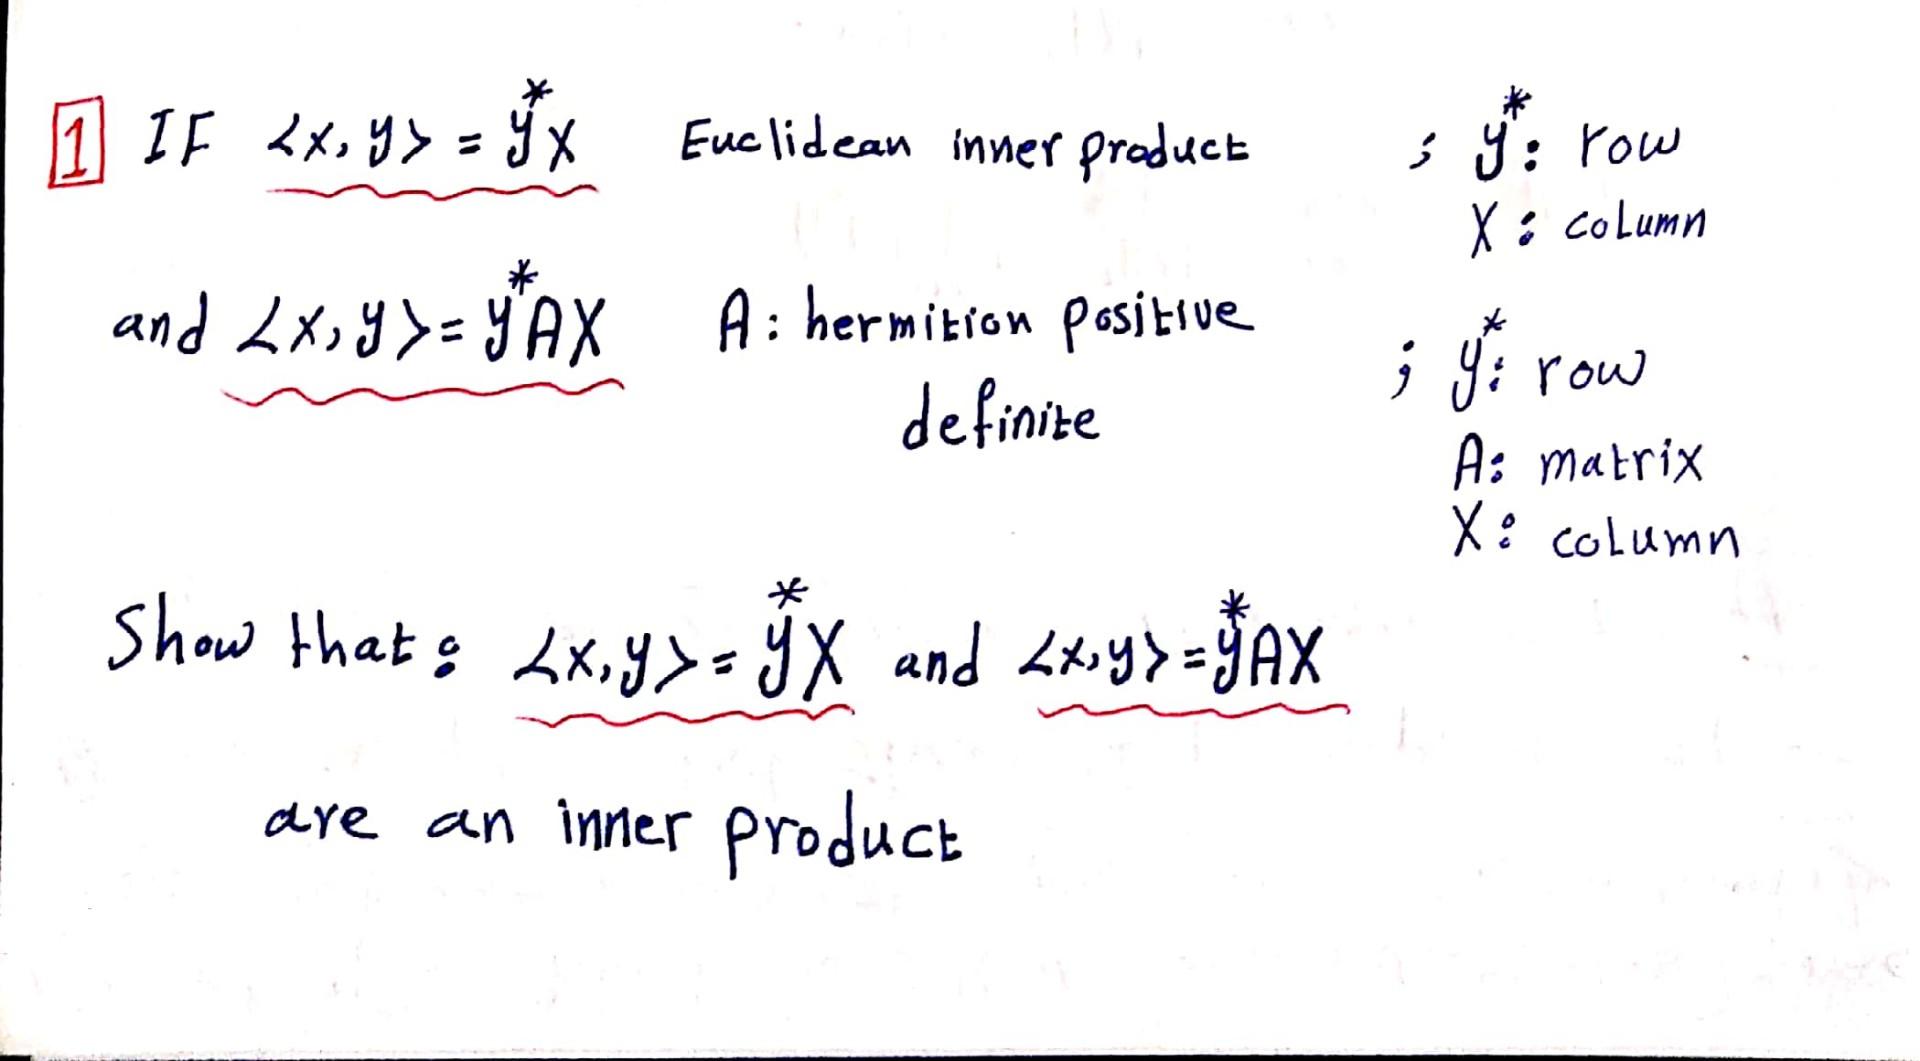 1 IF <x, y> = y*x Euclidean inner product ; y*: row
X: column
and <x, y> = y*AX A: hermition positive definite ; y*: row
A: matrix
X: column
Show that: <x, y> = y*X and <x, y> = y*AX
are an inner product